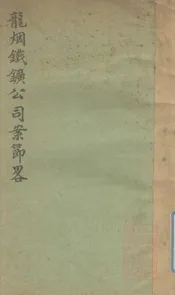 龍烟鐵鑛公司案節畧